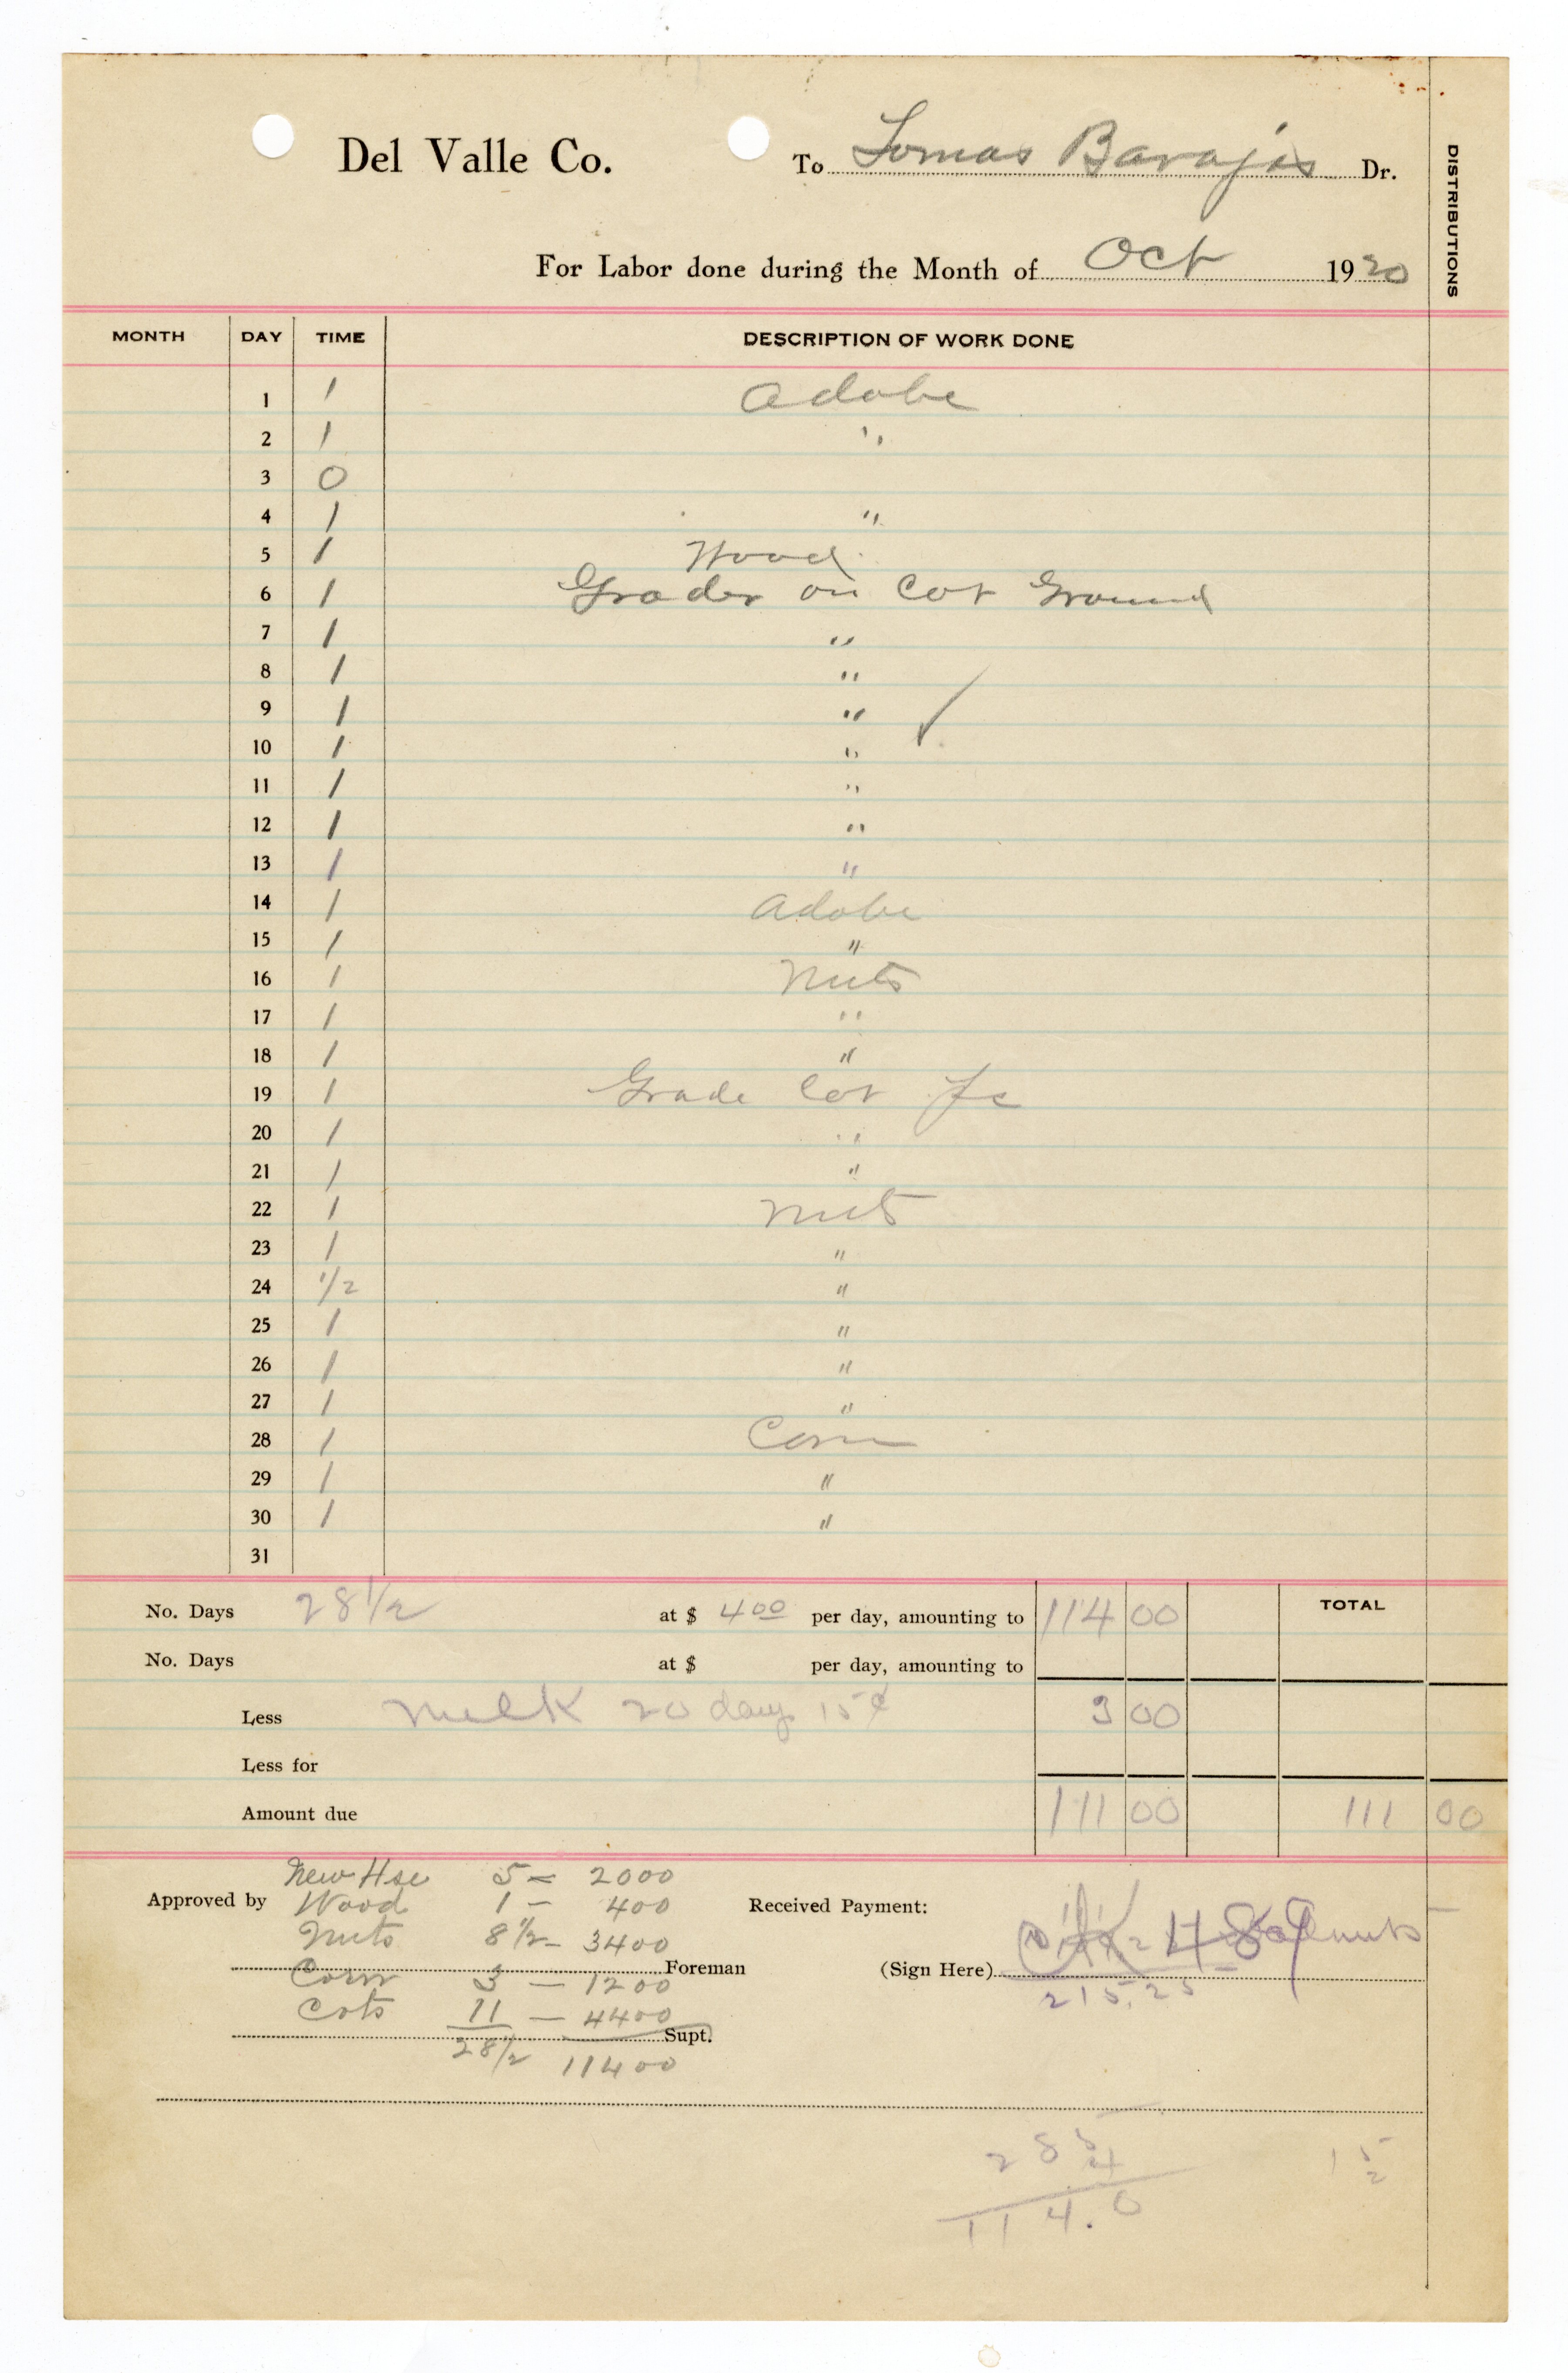 Del Valle Co. To Tomas Barajas Dr.
DISTRIBUTIONS
For Labor done during the Month of Oct 1920
MONTH DAY TIME DESCRIPTION OF WORK DONE
1 1 Adobe
2 1 "
3 0
4 1 "
5 1 Wood
6 1 Grader on Cot Ground
7 1 "
8 1 "
9 1 " ✓
10 1 "
11 1 "
12 1 "
13 1 "
14 1 Adobe
15 1 "
16 1 Nuts
17 1 "
18 1 "
19 1 Grade Cot
20 1 "
21 1 "
22 1 Nuts
23 1 "
24 1/2 "
25 1 "
26 1 "
27 1 "
28 1 Corn
29 1 "
30 1 "
31
No. Days 28 1/2 at $ 4 00 per day, amounting to 114 00 TOTAL
No. Days at $ per day, amounting to
Less Milk 20 days 15¢ 3 00
Less for
Amount due 111 00 111 00
New Hse 5 = 2000
Approved by Wood 1 - 400 Received Payment:
Nuts 8 1/2 - 3400
Foreman (Sign Here)
Corn 3 - 1200
215.25
Cots 11 - 4400
Supt.
28 1/2 11400
28 5
4
114.0